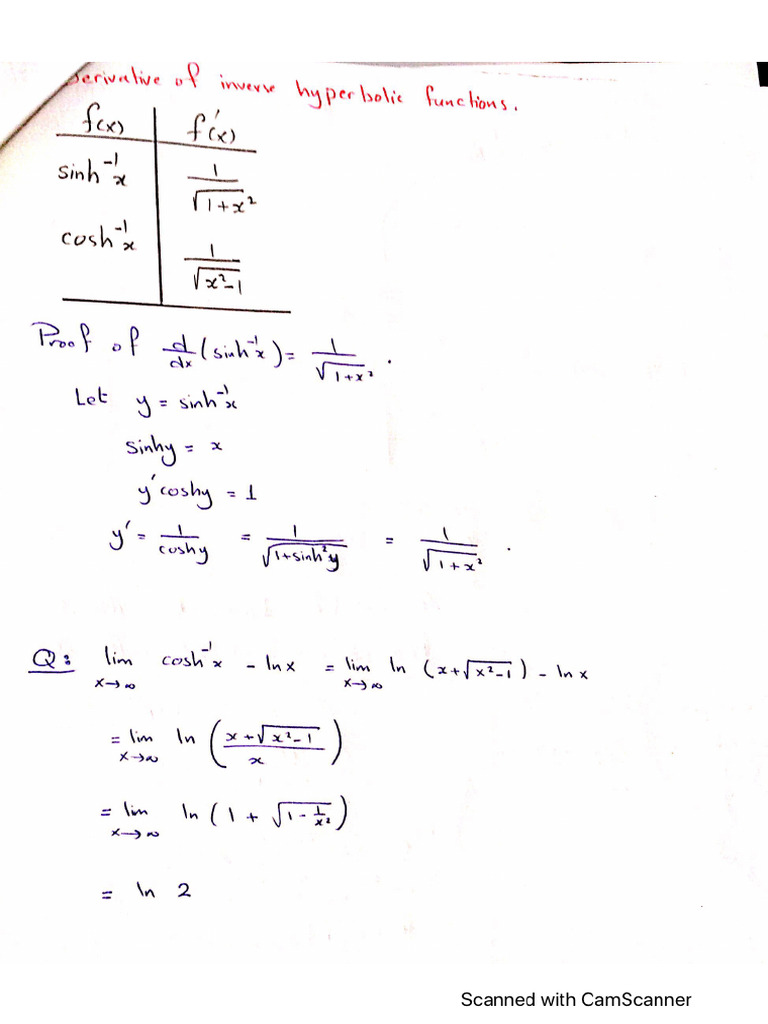 Derivative of inverse hyperbolic functions.
f(x) f'(x)
sinh⁻¹x 1/√(1+x²)
cosh⁻¹x 1/√(x²-1)
Proof of d/dx (sinh⁻¹x) = 1/√(1+x²) .
Let y = sinh⁻¹x
sinhy = x
y' coshy = 1
y' = 1/coshy = 1/√(1+sinh²y) = 1/√(1+x²) .
Q: lim x→∞ cosh⁻¹x - lnx = lim x→∞ ln (x+√(x²-1)) - lnx
= lim x→∞ ln ((x+√(x²-1))/x)
= lim x→∞ ln (1 + √(1-1/x²))
= ln 2
Scanned with CamScanner